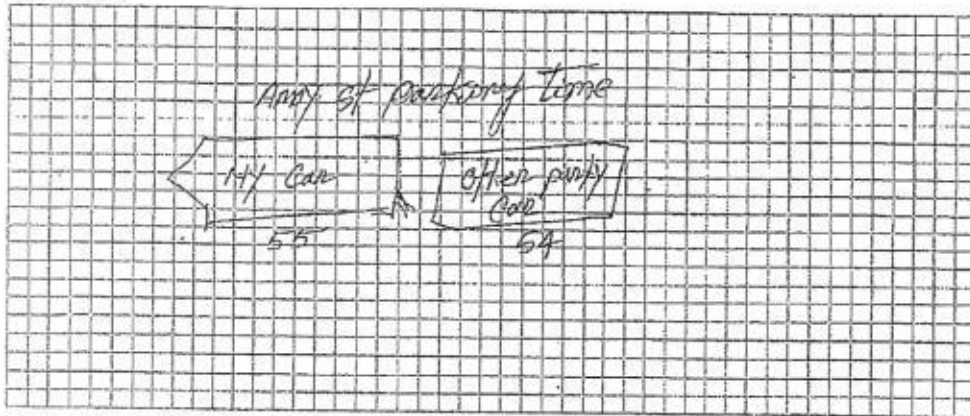 Amy st parking time
MY Car
other party
Car
55
54